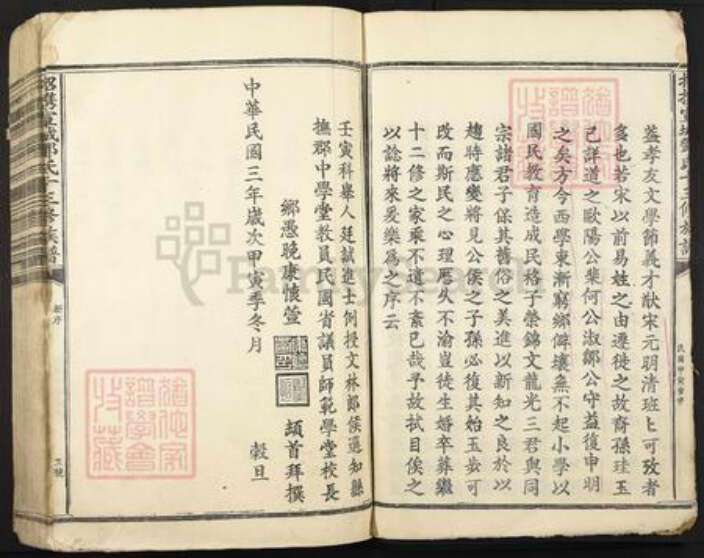 蓋孝友文學節義才猷宋元明清班匕可攷者
多也若宋以前易姓之由遷徙之故裔孫珪玉
己詳道之歐陽公棐何公淑鄒公守益復申明
之矣方今西學東漸窮鄉僻壤無不起小學以
國民教育造成民格子榮錦文龍光三君與同
宗諸君子保其舊俗之美進以新知之良於以
趨時應變將見公侯之子孫必復其始玉步可
改而斯民之心理歷久不渝豈徒生婚卒葬繼
十二修之家乘不遺不紊已哉予故拭目俟之
以諗將來爰樂為之序云
壬寅科舉人廷試進士例授文林郎候選知縣
撫郡中學堂教員民國省議員師範學堂校長
鄉憑晚康懷萱
頓首拜撰
中華民國三年歲次甲寅季冬月
穀旦
氏十三修族譜
新序
民國甲寅會修
FamilySearch